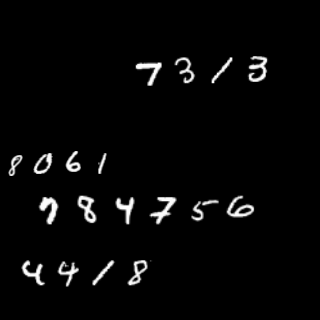 7313
8061
784756
4418